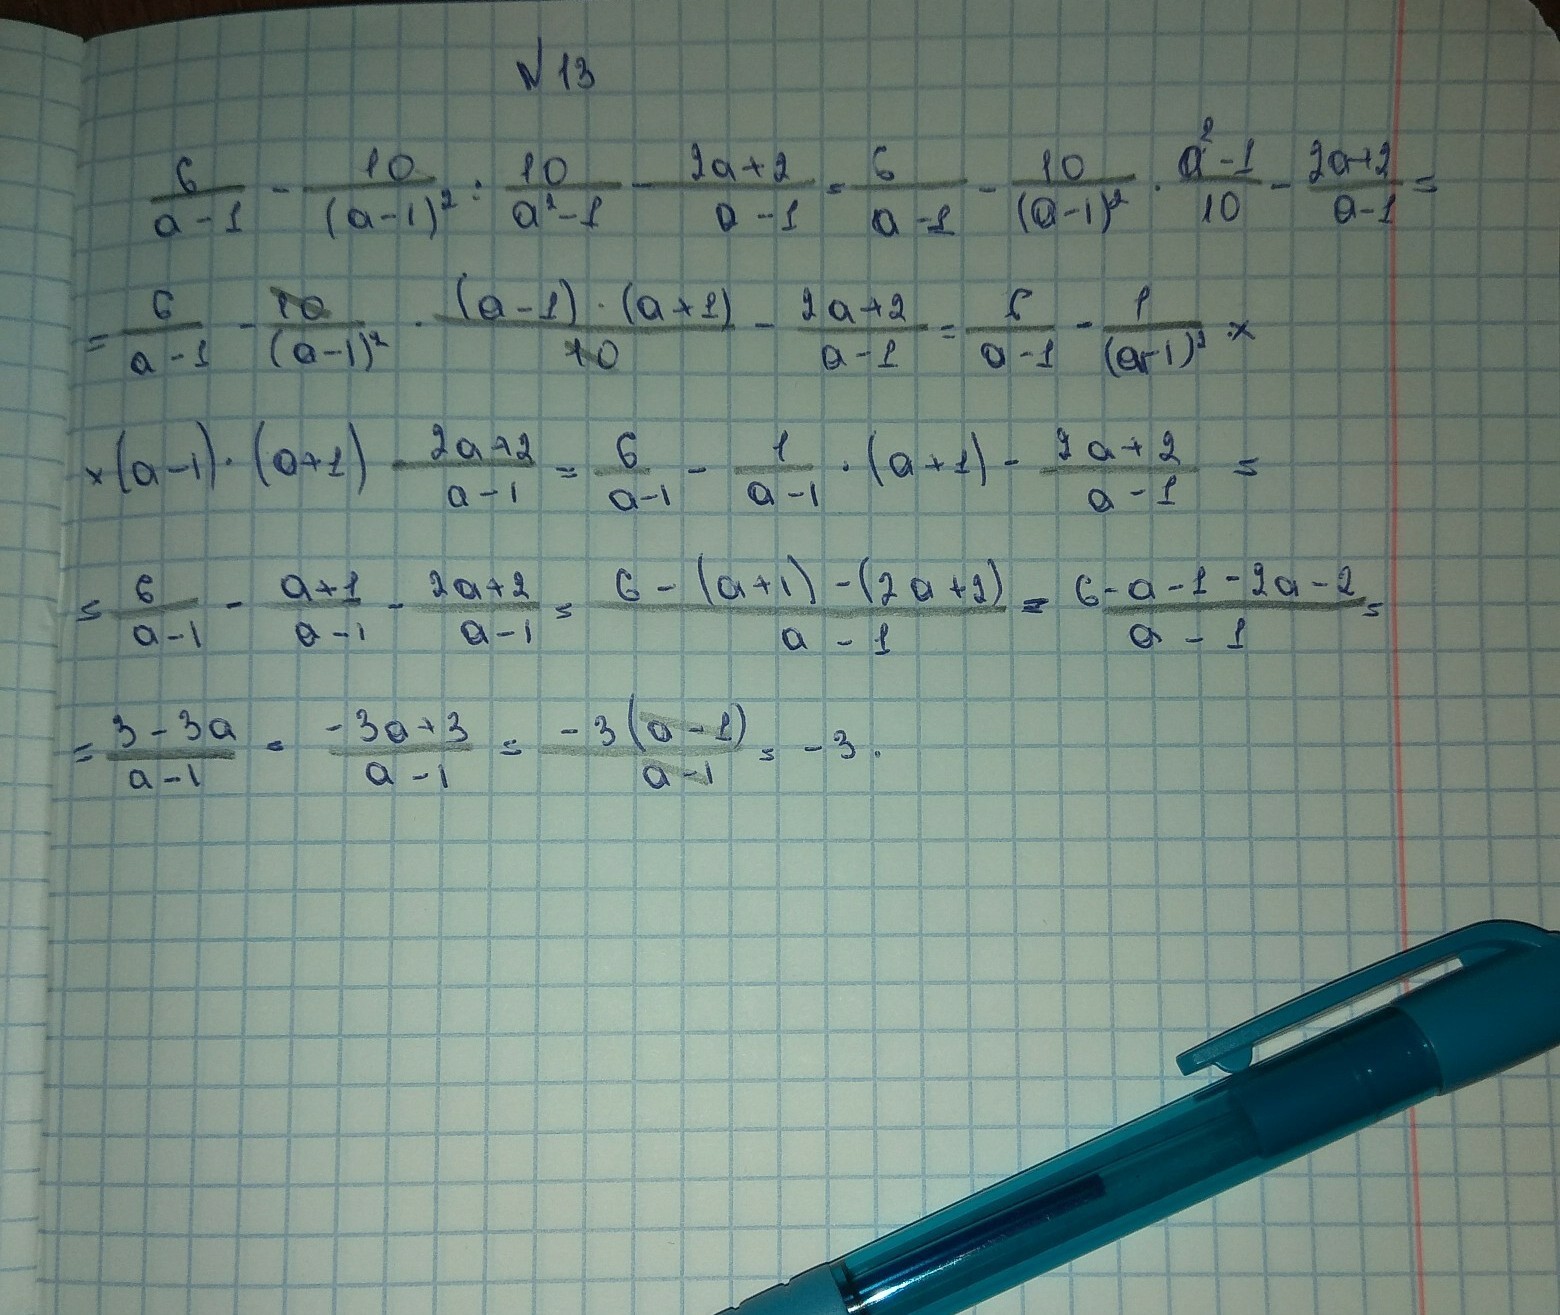 № 13
6/(a-1) - 10/(a-1)² : 10/(a²-1) - (2a+2)/(a-1) = 6/(a-1) - 10/(a-1)² · (a²-1)/10 - (2a+2)/(a-1) =
= 6/(a-1) - 10/(a-1)² · ((a-1)·(a+1))/10 - (2a+2)/(a-1) = 6/(a-1) - 1/(a-1)² ·×
×(a-1)·(a+1) - (2a+2)/(a-1) = 6/(a-1) - 1/(a-1) · (a+1) - (2a+2)/(a-1) =
= 6/(a-1) - (a+1)/(a-1) - (2a+2)/(a-1) = (6-(a+1)-(2a+2))/(a-1) = (6-a-1-2a-2)/(a-1) =
= (3-3a)/(a-1) = (-3a+3)/(a-1) = (-3(a-1))/(a-1) = -3.